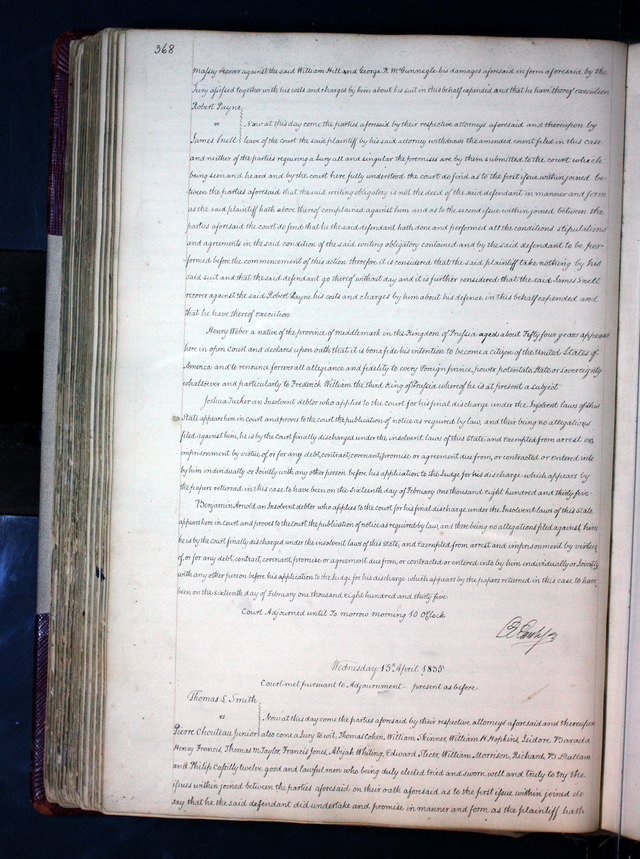 368
Massey recover against the said William Hill and George K McGunnegle his damages aforesaid in form aforesaid by the
Jury assessed together with his costs and charges by him about his suit in this behalf expended and that he have thereof execution
Robert Payne
vs
Now at this day come the parties aforesaid by their respective attorneys aforesaid and thereupon by
James Snell leave of the court the said plaintiff by his said attorney withdraws the amended count filed in this case
and neither of the parties requiring a Jury all and singular the premises are by them submitted to the court which
being seen and heard and by the court here fully understood the court do find as to the first issue within joined be-
tween the parties aforesaid that the said writing obligatory is not the deed of the said defendant in manner and form
as the said plaintiff hath above thereof complained against him and as to the second issue within joined between the
parties aforesaid the court do find that he the said defendant hath done and performed all the conditions stipulations
and agreements in the said condition of the said writing obligatory contained and by the said defendant to be per-
-formed before the commencement of this action therefore it is considered that the said plaintiff take nothing by his
said suit and that the said defendant go thereof without day and it is further considered that the said James Snell
recover against the said Robert Payne his costs and charges by him about his defence in this behalf expended and
that he have thereof execution
Henry Weber a native of the province of middlemark in the Kingdom of Prussia aged about Fifty four years appears
here in open Court and declares upon oath that it is bona fide his intention to become a citizen of the United States of
America and to renounce forever all allegiance and fidelity to every Foreign prince, power potentate State or Sovereignty
whatsoever and particularly to Frederick William the third King of Prussia whereof he is at present a subject
Joshua Tucker an Insolvent debtor who applies to the court for his final discharge under the Insolvent laws of this
State appears here in court and proves to the court the publication of notice as required by law, and their being no allegations
filed against him, he is by the court finally discharged under the insolvent laws of this State and Exempted from arrest or
imprisonment by virtue of, or for any debt, contract, covenant promise or agreement due from, or contracted or entered into
by him individually or Jointly with any other person before his application to the Judge for his discharge which appears by
the papers returned in this case to have been on the Sixteenth day of February one thousand eight hundred and thirty five-
Benjamin Arnold an Insolvent debtor who applies to the court for his final discharge under the Insolvent laws of this State
appears here in court and proves to the court the publication of notice as required by law, and there being no allegations filed against him
he is by the court finally discharged under the insolvent laws of this State, and Exempted from arrest and imprisonment by virtue
of, or for any debt, contract, covenant, promise or agreement due from, or contracted or entered into by him individually or Jointly
with any other person before his application to the Judge for his discharge which appears by the papers returned in this case to have
been on the sixteenth day of February one thousand eight hundred and thirty five
Court Adjourned until To morrow morning 10 O'Clock
Wednesday 15th April 1835
Court met pursuant to Adjournment present as before.
Thomas L Smith
vs
Now at this day come the parties aforesaid by their respective attorneys aforesaid and thereupon
Pierre Chouteau Junior also come a Jury to wit, Thomas Cohen, William Skinner, William H Hopkins, Isidore, Barada
Henry Francis, Thomas M Taylor, Francis Jones, Abijah Whiting, Edward William Morrison, Richard, D
and Philip twelve good and lawful men who being duly elected tried and sworn well and truly to try the
issues within joined between the parties aforesaid on their oath aforesaid as to the first issue within joined do
say that he the said defendant did undertake and promise in manner and form as the plaintiff hath